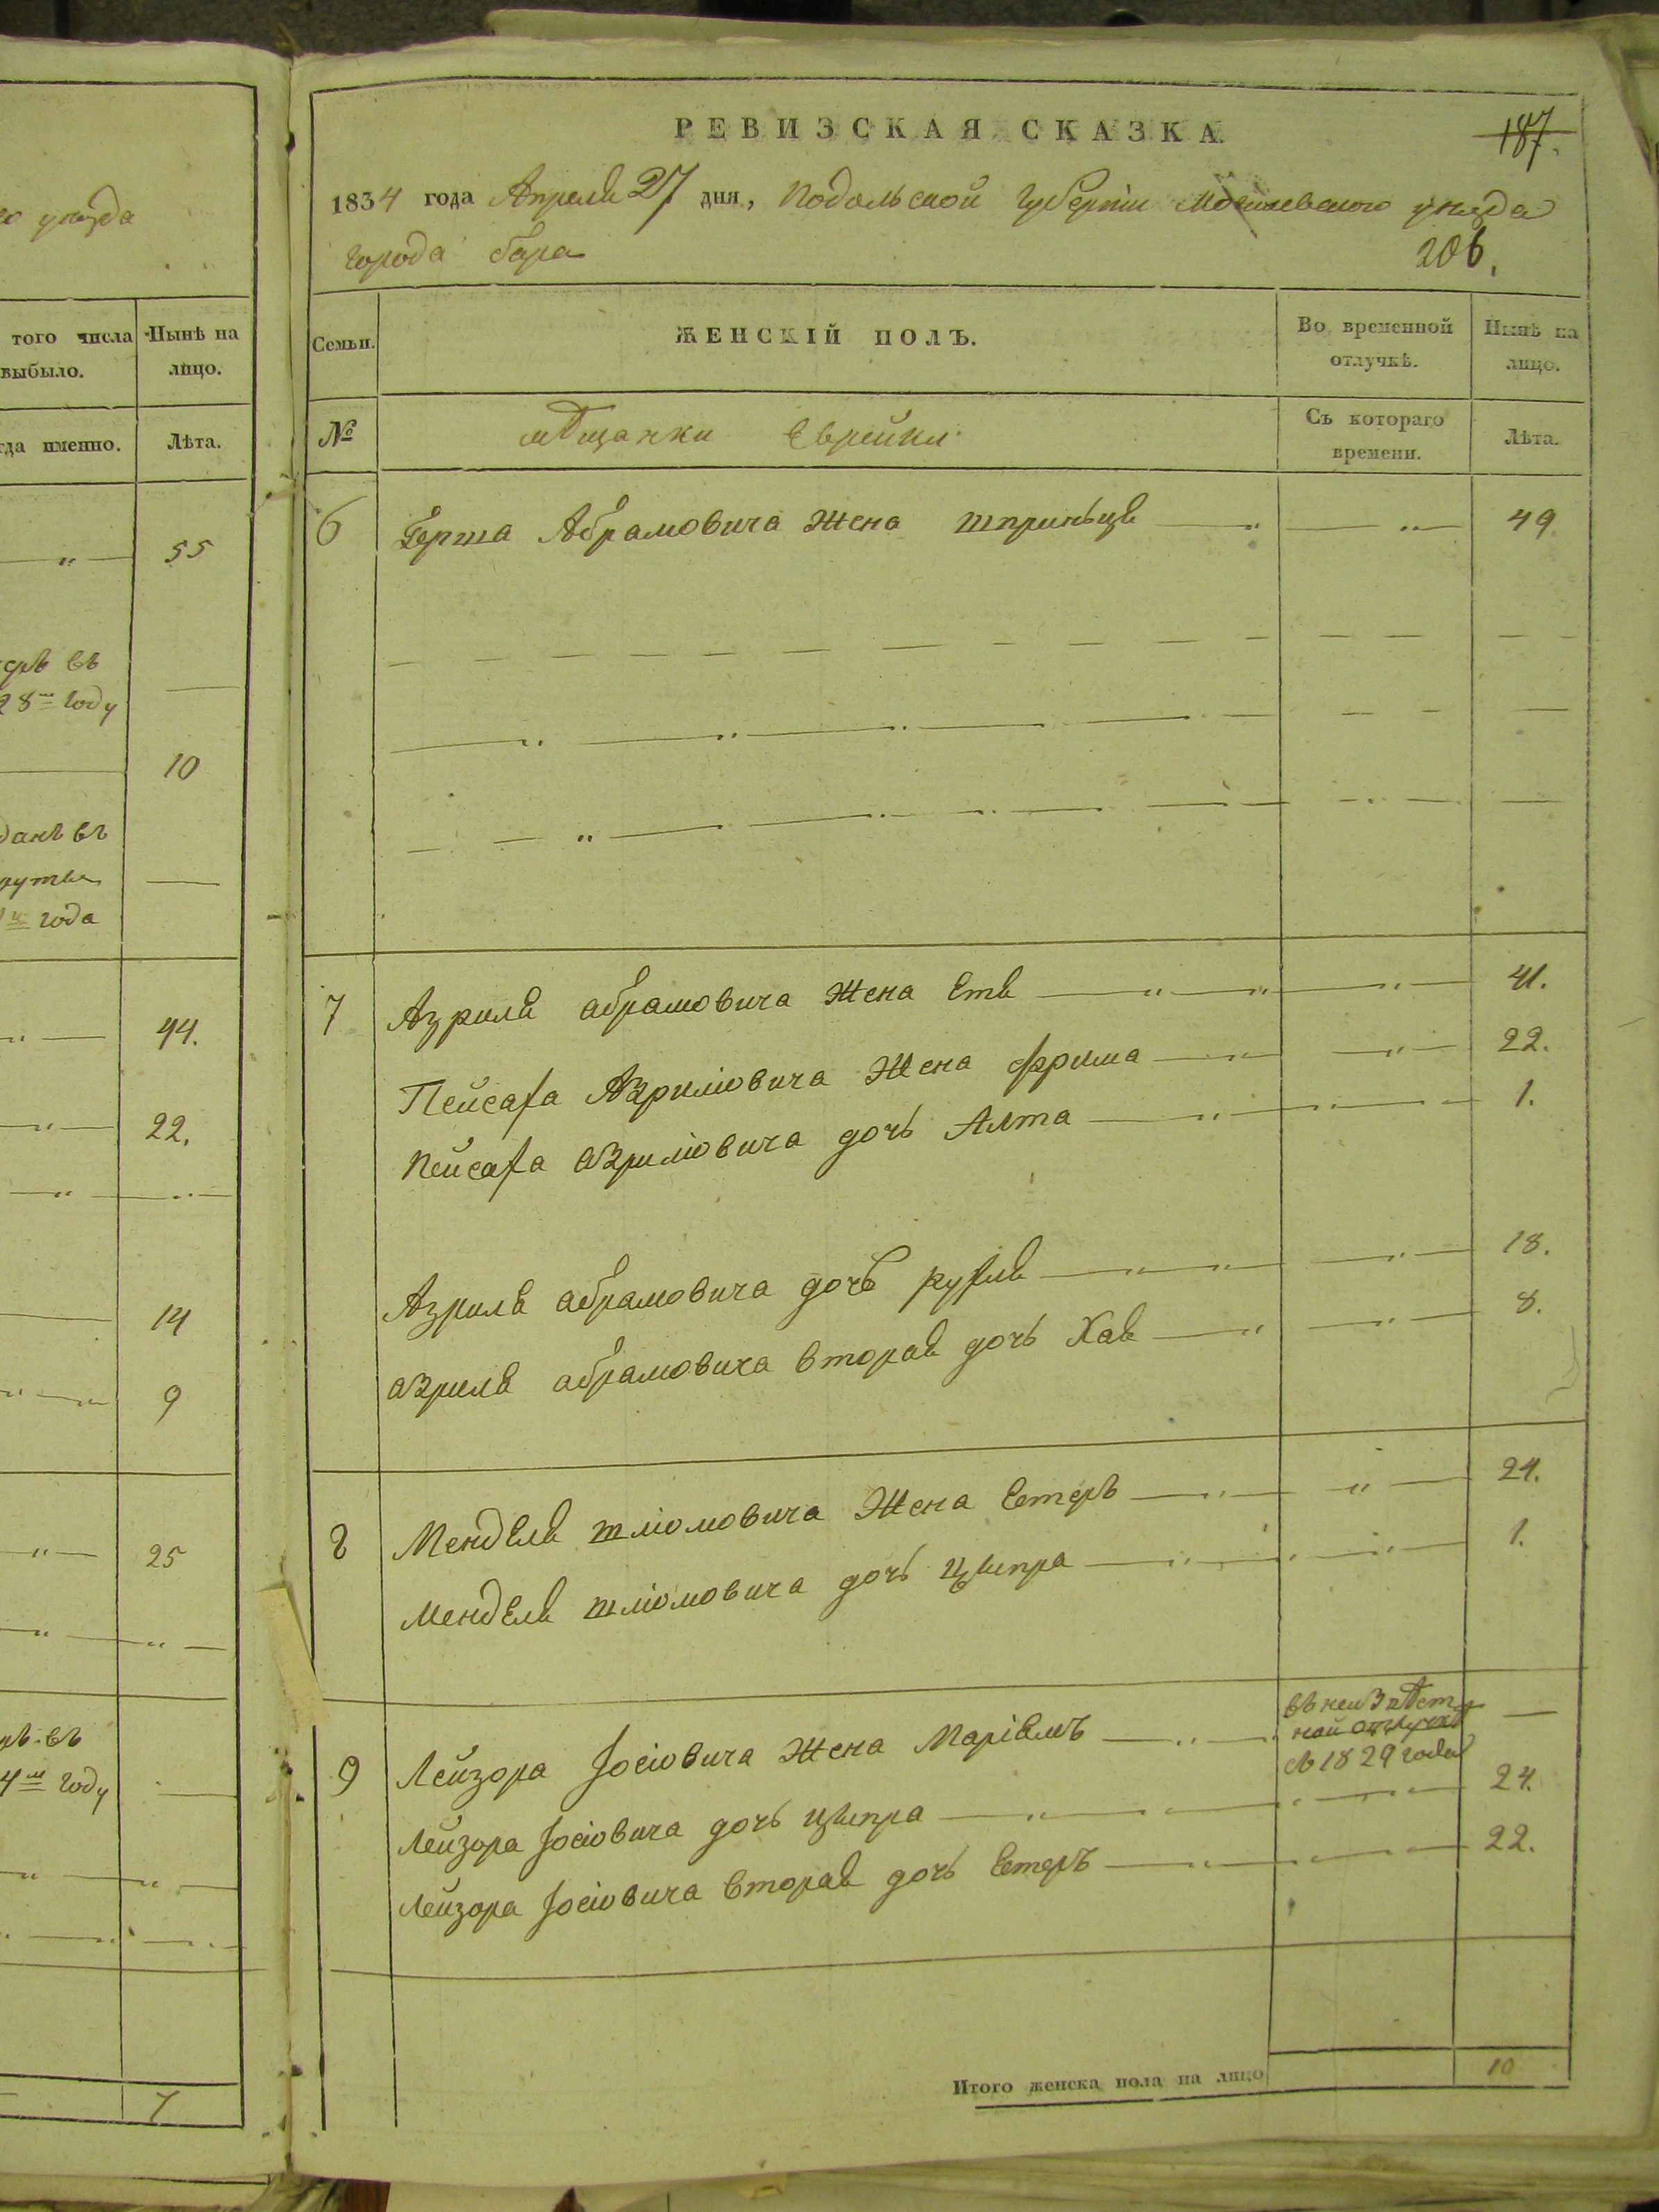 го уезда
того числа
выбыло.
Нынѣ на
лицо.
гда именно.
Лѣта.
55
въ
28 году
10
въ
года
44.
22.
14
9
25
въ
4 году
7
РЕВИЗСКАЯ СКАЗКА.
187.
1834 года Апреля 27 дня, Подольской Губерніи Могилевского уезда
города бара
206.
Семьи.
ЖЕНСКІЙ ПОЛЪ.
Во временной
отлучкѣ.
Нынѣ на
лицо.
№
мѣщанки Еврейки
Съ котораго
времени.
Лѣта.
6 Герша Абрамовича Жена шприньця 49.
7 Азриля абрамовича Жена Етя 41.
Пейсаха Азриліовича Жена фрима 22.
Пейсаха азриліовича дочь Алта 1.
Азриля абрамовича дочь рухля 18.
азриля абрамовича вторая дочь Хая 8.
8 Менделя шліомовича Жена Естеръ 24.
Менделя шліомовича дочь ципра 1.
9 Лейзора Іосіовича Жена Маріемъ въ неизвѣст
ной отлучкѣ
съ 1829 года
Лейзора Іосіовича дочь ципра 24.
Лейзора Іосіовича вторая дочь Естеръ 22.
Итого женска пола на лицо 10